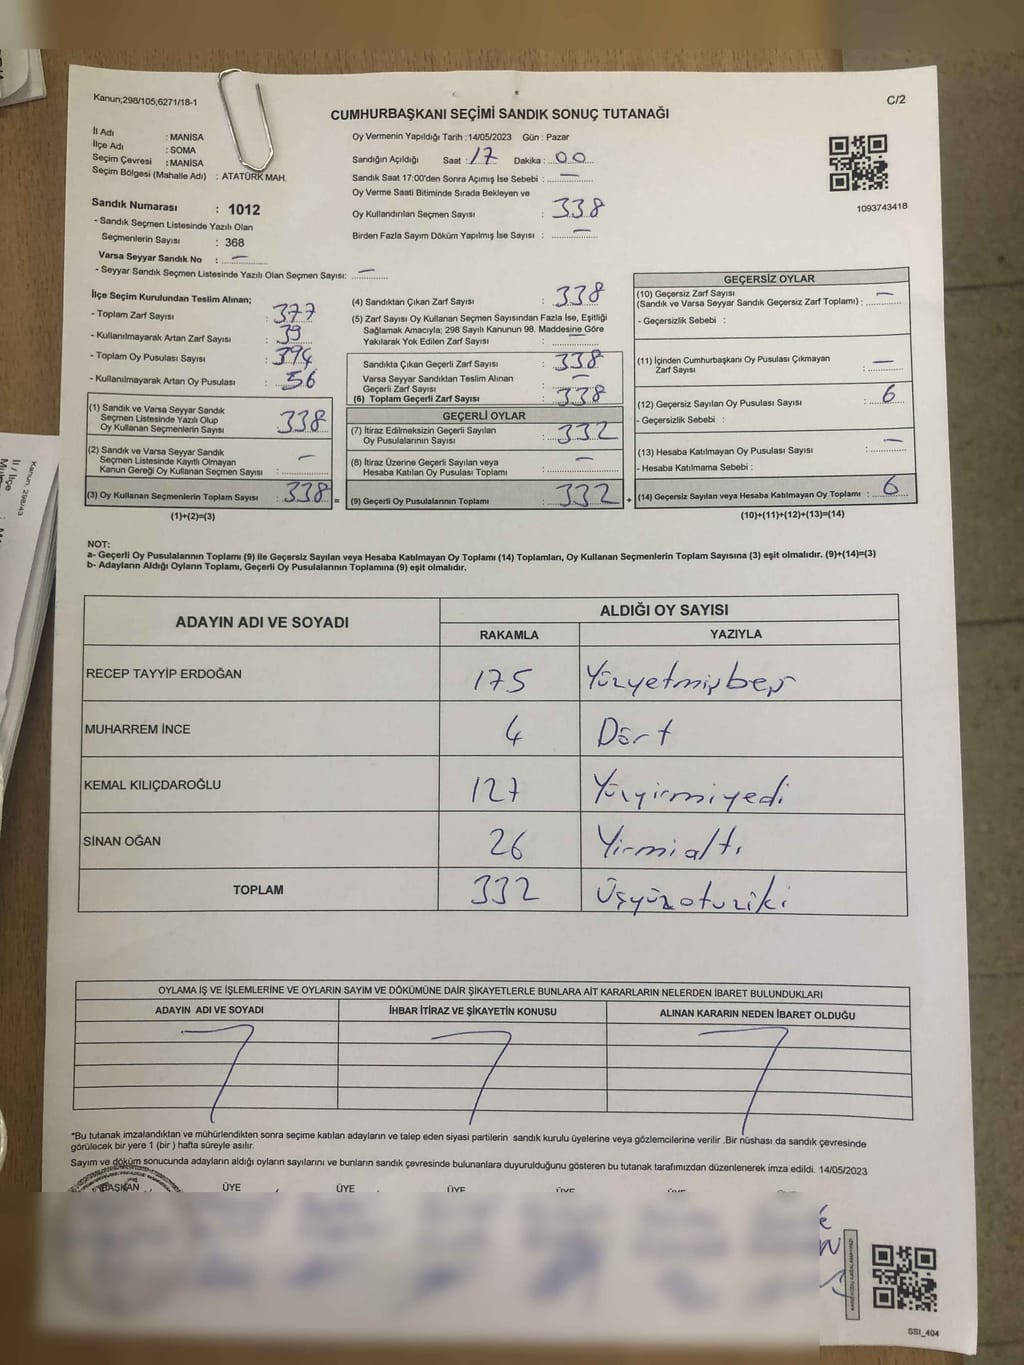 Kanun;298/105,6271/18-1
C/2
CUMHURBAŞKANI SEÇİMİ SANDIK SONUÇ TUTANAĞI
İl Adı : MANİSA
İlçe Adı : SOMA
Seçim Çevresi : MANİSA
Seçim Bölgesi (Mahalle Adı) : ATATÜRK MAH.
Sandık Numarası : 1012
- Sandık Seçmen Listesinde Yazılı Olan
Seçmenlerin Sayısı : 368
Varsa Seyyar Sandık No : —
- Seyyar Sandık Seçmen Listesinde Yazılı Olan Seçmen Sayısı: —
Oy Vermenin Yapıldığı Tarih :14/05/2023 Gün : Pazar
Sandığın Açıldığı Saat : 17 Dakika : 00
Sandık Saat 17:00'den Sonra Açımış İse Sebebi : —
Oy Verme Saati Bitiminde Sırada Bekleyen ve
Oy Kullandırılan Seçmen Sayısı : 338
Birden Fazla Sayım Döküm Yapılmış İse Sayısı : —
1093743418
İlçe Seçim Kurulundan Teslim Alınan;
- Toplam Zarf Sayısı : 377
- Kullanılmayarak Artan Zarf Sayısı : 39
- Toplam Oy Pusulası Sayısı : 394
- Kullanılmayarak Artan Oy Pusulası : 56
(1) Sandık ve Varsa Seyyar Sandık
Seçmen Listesinde Yazılı Olup
Oy Kullanan Seçmenlerin Sayısı : 338
(2) Sandık ve Varsa Seyyar Sandık
Seçmen Listesinde Kayıtlı Olmayan
Kanun Gereği Oy Kullanan Seçmen Sayısı : —
(3) Oy Kullanan Seçmenlerin Toplam Sayısı : 338 =
(1)+(2)=(3)
(4) Sandıktan Çıkan Zarf Sayısı : 338
(5) Zarf Sayısı Oy Kullanan Seçmen Sayısından Fazla İse, Eşitliği
Sağlamak Amacıyla; 298 Sayılı Kanunun 98. Maddesine Göre
Yakılarak Yok Edilen Zarf Sayısı : —
Sandıkta Çıkan Geçerli Zarf Sayısı : 338
Varsa Seyyar Sandıktan Teslim Alınan
Geçerli Zarf Sayısı : —
(6) Toplam Geçerli Zarf Sayısı : 338
GEÇERLİ OYLAR
(7) İtiraz Edilmeksizin Geçerli Sayılan
Oy Pusulalarının Sayısı : 332
(8) İtiraz Üzerine Geçerli Sayılan veya
Hesaba Katılan Oy Pusulası Toplamı : —
(9) Geçerli Oy Pusulalarının Toplamı : 332 +
GEÇERSİZ OYLAR
(10) Geçersiz Zarf Sayısı
(Sandık ve Varsa Seyyar Sandık Geçersiz Zarf Toplamı) : —
- Geçersizlik Sebebi :
(11) İçinden Cumhurbaşkanı Oy Pusulası Çıkmayan
Zarf Sayısı : —
(12) Geçersiz Sayılan Oy Pusulası Sayısı : 6
- Geçersizlik Sebebi :
(13) Hesaba Katılmayan Oy Pusulası Sayısı : —
- Hesaba Katılmama Sebebi :
(14) Geçersiz Sayılan veya Hesaba Katılmayan Oy Toplamı : 6
(10)+(11)+(12)+(13)=(14)
NOT:
a- Geçerli Oy Pusulalarının Toplamı (9) ile Geçersiz Sayılan veya Hesaba Katılmayan Oy Toplamı (14) Toplamları, Oy Kullanan Seçmenlerin Toplam Sayısına (3) eşit olmalıdır. (9)+(14)=(3)
b- Adayların Aldığı Oyların Toplamı, Geçerli Oy Pusulalarının Toplamına (9) eşit olmalıdır.
ADAYIN ADI VE SOYADI
ALDIĞI OY SAYISI
RAKAMLA YAZIYLA
RECEP TAYYİP ERDOĞAN 175 Yüzyetmişbeş
MUHARREM İNCE 4 Dört
KEMAL KILIÇDAROĞLU 127 Yüzyirmiyedi
SİNAN OĞAN 26 Yirmialtı
TOPLAM 332 Üçyüzotuziki
OYLAMA İŞ VE İŞLEMLERİNE VE OYLARIN SAYIM VE DÖKÜMÜNE DAİR ŞİKAYETLERLE BUNLARA AİT KARARLARIN NELERDEN İBARET BULUNDUKLARI
ADAYIN ADI VE SOYADI İHBAR İTİRAZ VE ŞİKAYETİN KONUSU ALINAN KARARIN NEDEN İBARET OLDUĞU
*Bu tutanak imzalandıktan ve mühürlendikten sonra seçime katılan adayların ve talep eden siyasi partilerin sandık kurulu üyelerine veya gözlemcilerine verilir .Bir nüshası da sandık çevresinde
görülecek bir yere 1 (bir ) hafta süreyle asılır.
Sayım ve döküm sonucunda adayların aldığı oyların sayılarını ve bunların sandık çevresinde bulunanlara duyurulduğunu gösteren bu tutanak tarafımızdan düzenlenerek imza edildi. 14/05/2023
BAŞKAN ÜYE ÜYE ÜYE ÜYE ÜYE
SSI_404